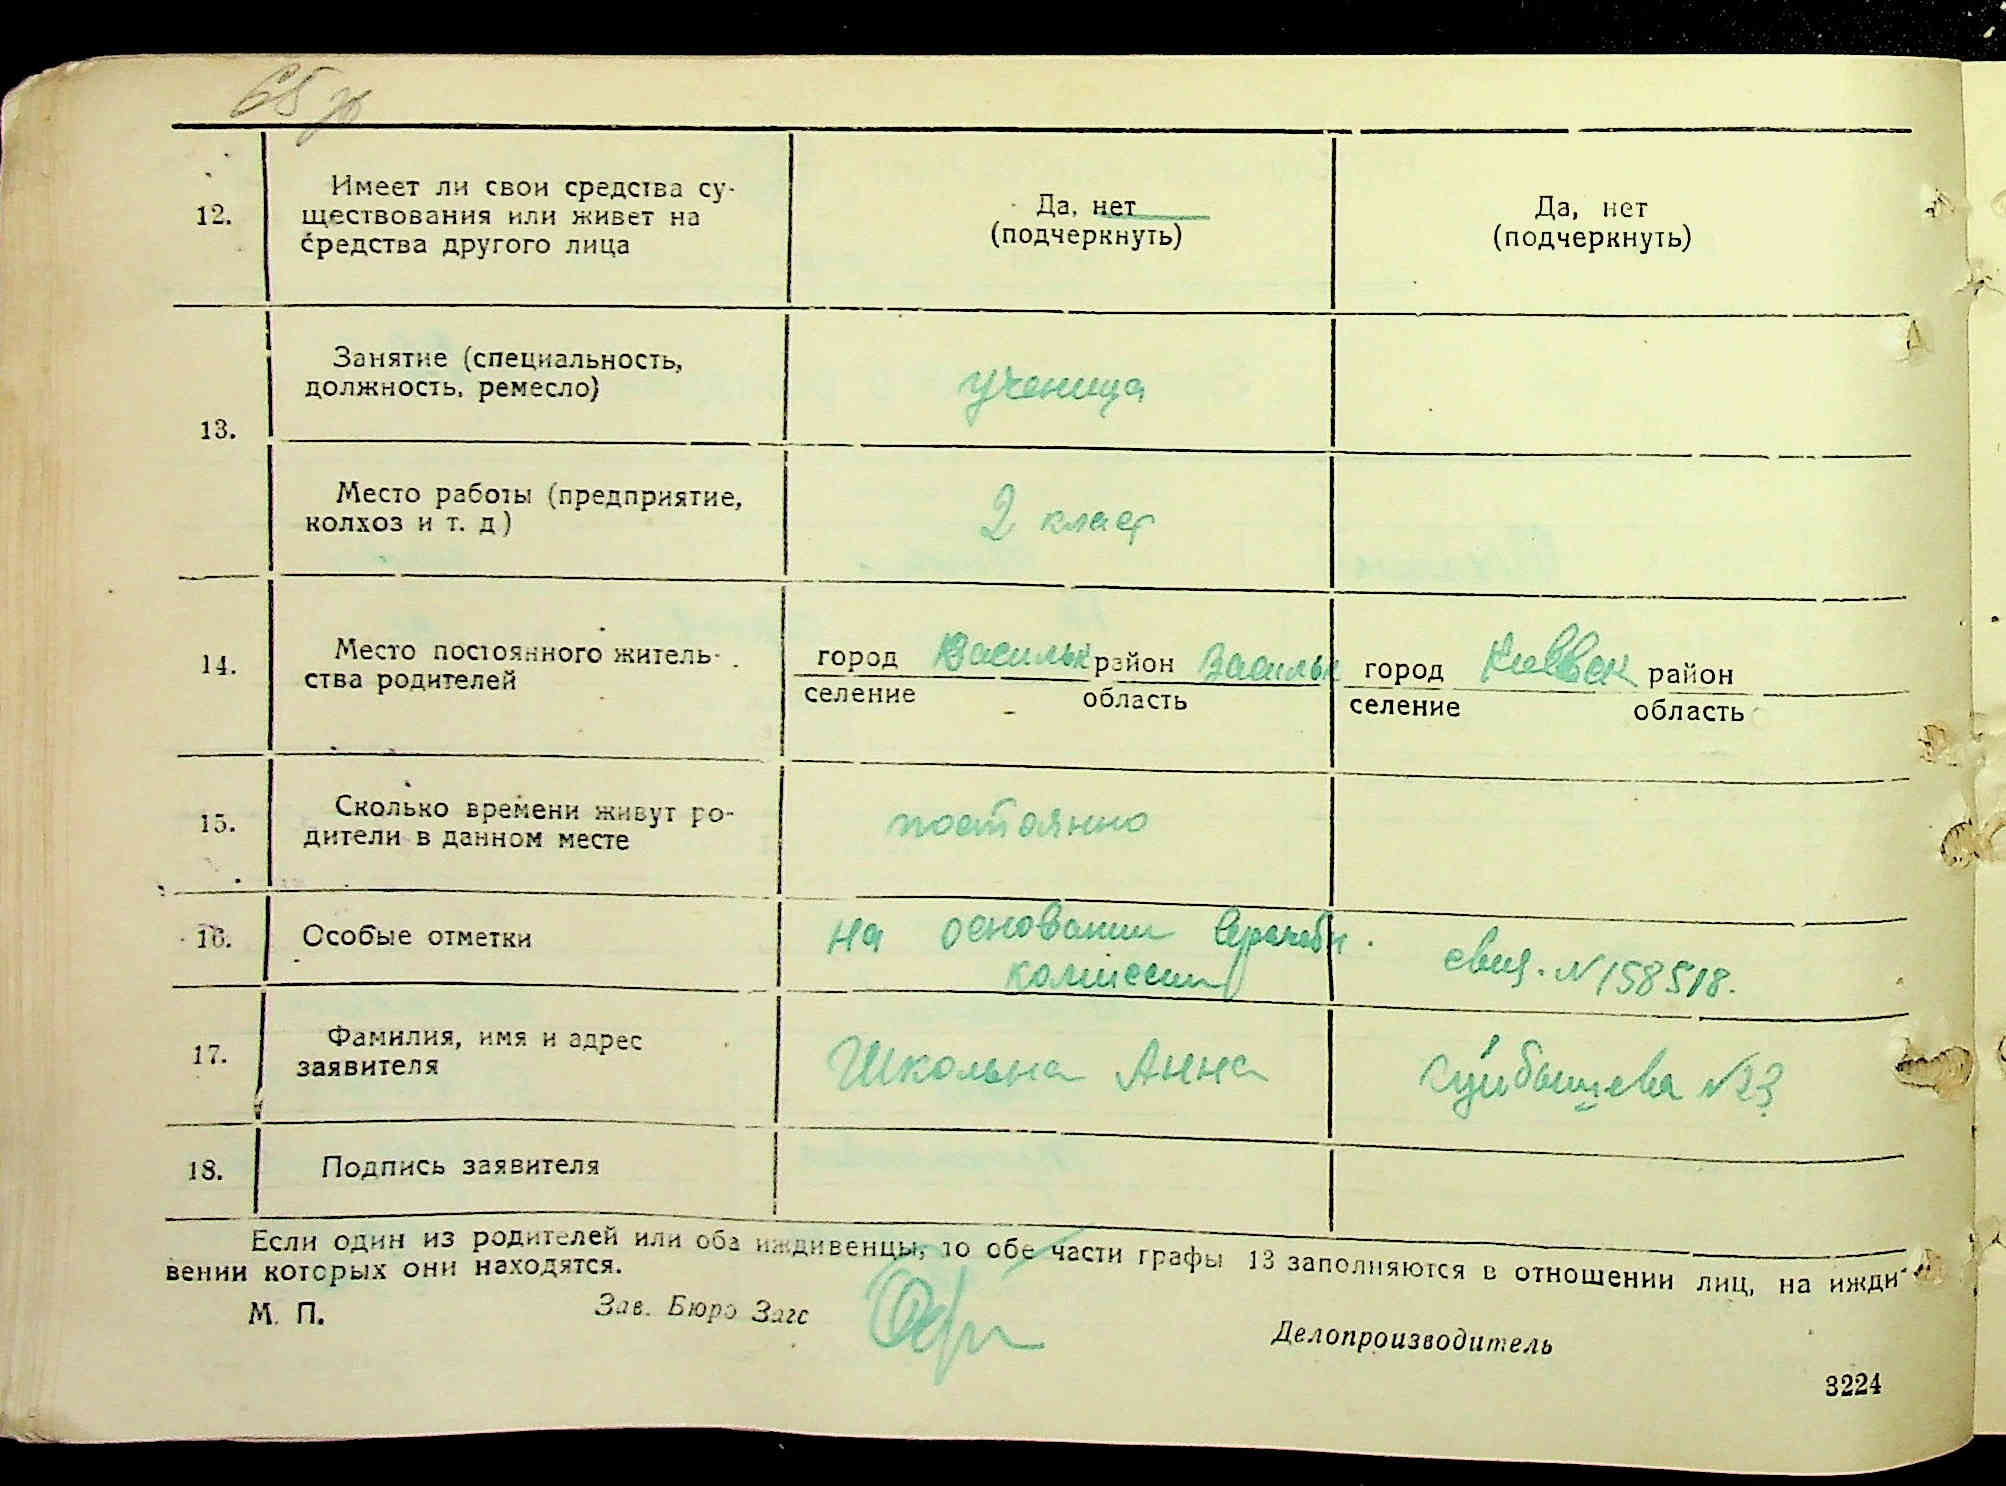 65
12.
Имеет ли свои средства су-
ществования или живет на
средства другого лица
Да, нет
(подчеркнуть)
Да, нет
(подчеркнуть)
13.
Занятие (специальность,
должность, ремесло)
ученица
Место работы (предприятие,
колхоз и т. д)
2 класс
14.
Место постоянного житель-
ства родителей
город Васильк район Васильк
селение область
город район
селение область
15.
Сколько времени живут ро-
дители в данном месте
постоянно
16.
Особые отметки
на основании врачебн.
комиссии
свид. № 158518.
17.
Фамилия, имя и адрес
заявителя
Школьна Анна
Куйбышева № 23
18.
Подпись заявителя
Если один из родителей или оба иждивенцы, то обе части графы 13 заполняются в отношении лиц, на ижди-
вении которых они находятся.
М. П.
Зав. Бюро Загс
Делопроизводитель
3224